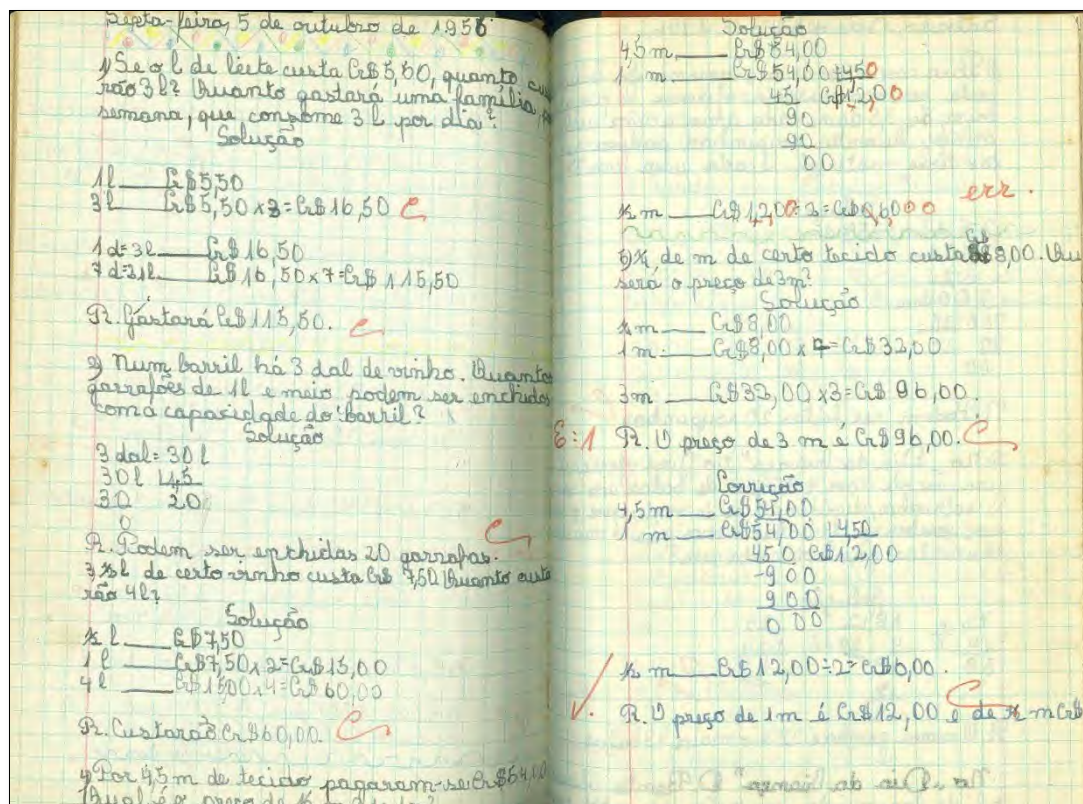 Sexta-feira, 5 de outubro de 1956
1) Se o l de leite custa Cr$5,50, quanto
rão 3 l? Quanto gastará uma família
semana, que consome 3 l por dia?
Solução
1 l Cr$5,50
3 l Cr$5,50 x 3 = Cr$16,50 C
1 d = 3 l Cr$16,50
7 d = 21 l Cr$16,50 x 7 = Cr$115,50
R. Gastará Cr$115,50. C
2) Num barril há 3 dal de vinho. Quantos
garrafões de 1l e meio podem ser enchidos
com a capacidade do barril?
Solução
3 dal = 30 l
30 l 1,5
30 20
0
C
R. Podem ser enchidas 20 garrafas.
3) ½ l de certo vinho custa Cr$ 7,50 Quanto custa
rão 4 l?
Solução
½ l Cr$7,50
1 l Cr$7,50 x 2 = Cr$15,00
4 l Cr$15,00 x 4 = Cr$60,00
R. Custarão Cr$60,00. C
4) Por 4,5 m de tecido pagaram-se Cr$54,00
Qual é o preço de ½
Solução
4,5 m Cr$54,00
1 m Cr$54,00 ÷ 450
45 Cr$12,00
90
90
00
err.
½ m
5) ¼ de m de certo tecido custa 8,00. Qu
será o preço de 3m?
Solução
¼ m Cr$8,00
1 m Cr$8,00 x 4 = Cr$32,00
3m Cr$32,00 x 3 = Cr$96,00.
E: 1 R. O preço de 3 m é Cr$96,00. C
Correção
4,5m Cr$54,00
1 m Cr$54,00 450
450 Cr$12,00
-900
900
000
½ m Cr$12,00 ÷ 2 = Cr$6,00.
C
R. O preço de 1m é Cr$12,00 e de ½ m Cr$